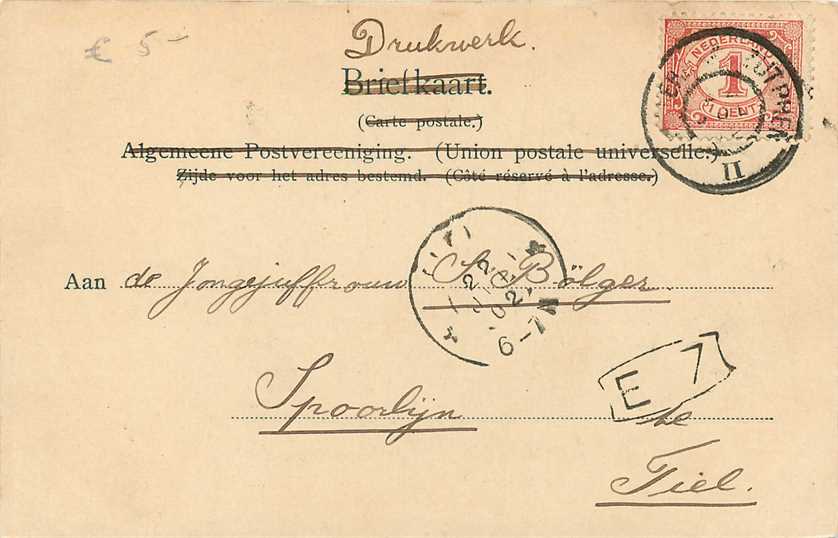 € 5-
Drukwerk.
Briefkaart.
(Carte postale.)
Algemeene Postvereeniging. (Union postale universelle.)
Zijde voor het adres bestemd. (Côté réservé à l'adresse.)
NEDERLAND
1
1 CENT
ZUTPHEN
II
Aan de Jongejuffrouw S. Bölger
22
02
6-7N
E 7
Spoorlijn te
Tiel.